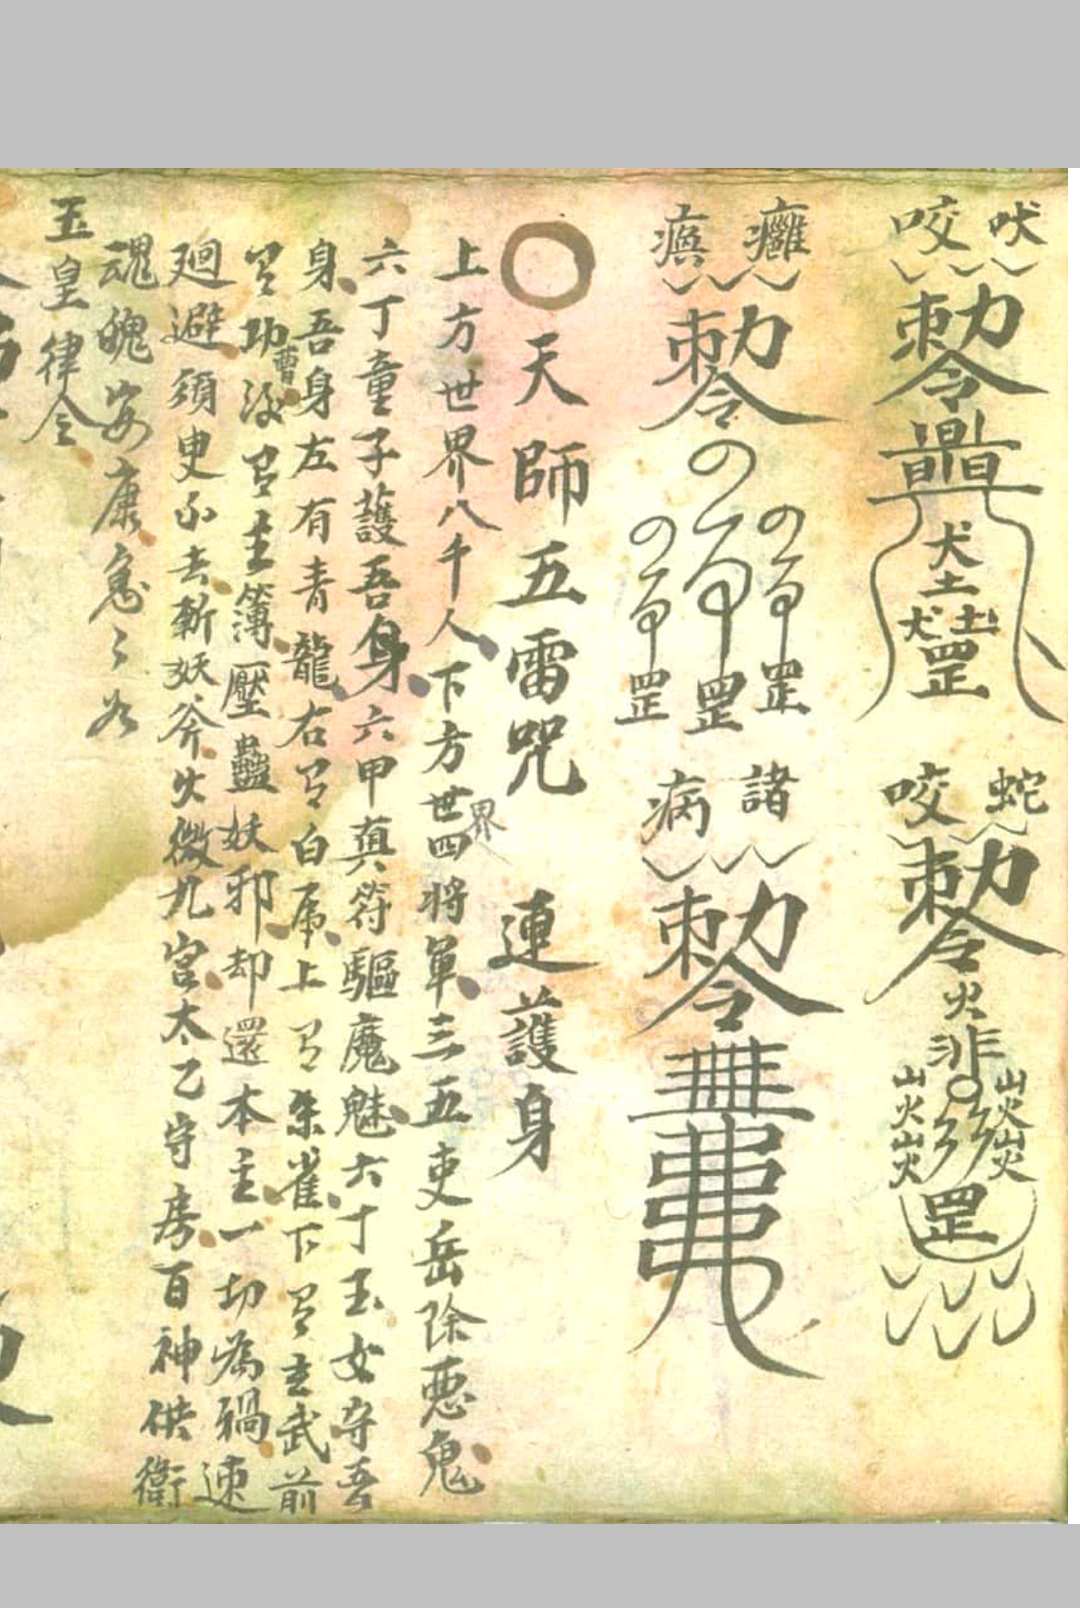 吠咬
敕令
犬
土
犬 土
罡
蛇咬
敕令
火
非
山火山火 山火山火
罡
癰
敕令
罡 罡 罡
諸病
敕令
天師五雷咒 連護身
上方世界八千人下方世界四將軍三五吏岳除惡鬼
六丁童子護吾身六甲真符驅魔魅六丁玉女守吾
身吾身左有青龍右有白虎上有朱雀下有玄武前
有功曹後有主簿壓蠱妖邪却還本主一切為禍速
廻避須臾不去斬妖斧火微九宮太乙守房百神供衛
魂魄安康急々如
玉皇律令